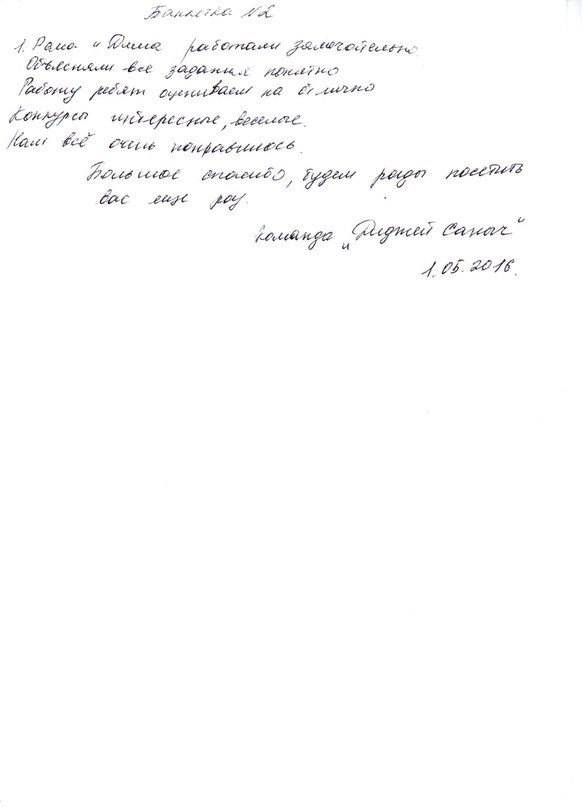 Банкетка N2
1. Рома и Дима работали замечательно
Объясняли все задания понятно
Работу ребят оцениваем на отлично
Конкурсы интересные, веселые.
Нам всё очень понравилось.
Большое спасибо, будем рады посетить
вас еще раз.
команда „Диджей Саныч"
1.05.2016.